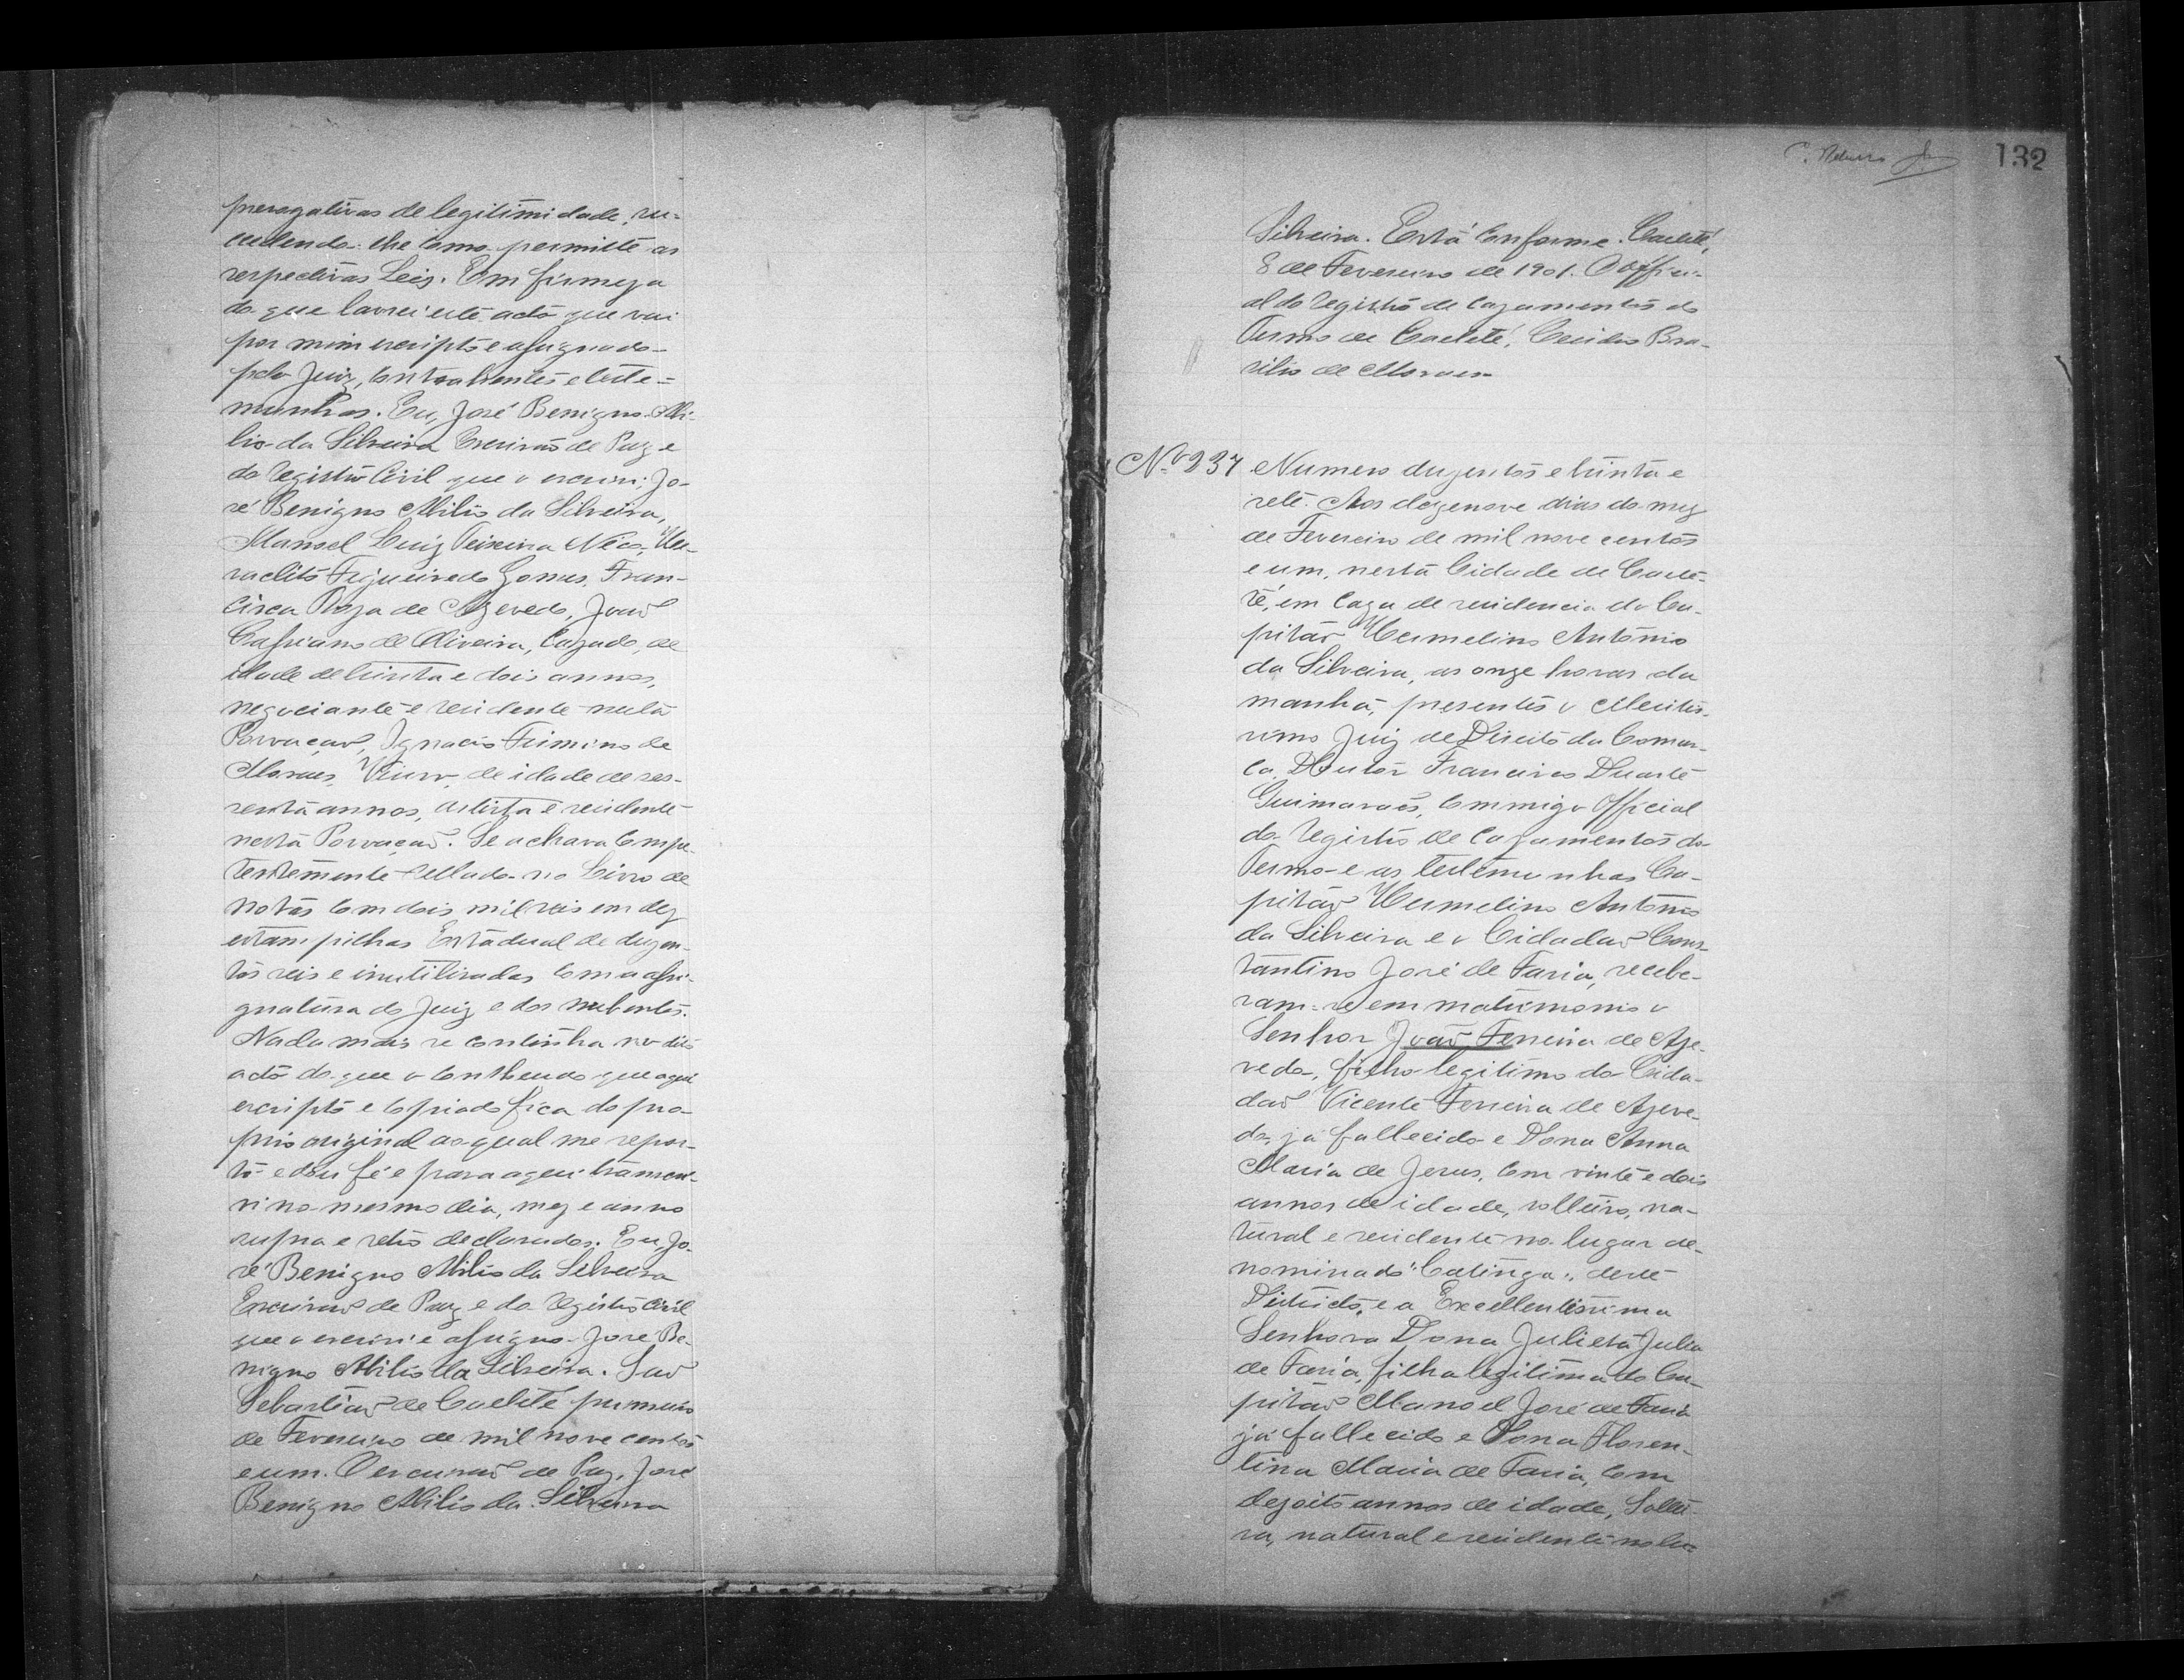 prerogativas de legitimidade, su-
cedendo-lhe como permitte as
respectivas Leis. Em firmeza
do que lavrei este acto que vai
por mim escripto e assignado
pelo Juiz, contrahentes e teste-
munhas. Eu, José Benigno Abi-
lio da Silveira Escrivão de Paz e
do registro Civil que o escrevi; Jo-
sé Benigno Abilio da Silveira,
Manoel Luiz Teixeira Nico, He-
raclito Figueiredo Gomes, Fran-
cisca Roza de Azevedo, João
Cassiano de Oliveira, Cazado, de
idade de trinta e dois annos,
negociante e residente nesta
Povoação, Ignacio Firmino de
Moraes, Viuvo, de idade de ses-
senta annos, artista e residente
nesta Povoação. Se achava compe-
tentemente Sellado no Livro de
notas com dois mil reis em dez
estampilhas Estadual de duzen-
tos reis e inutilisadas com a assi-
gnatura do Juiz e dos nubentes.
Nada mais se continha no dito
acto do que o contheudo que aqui
escripto e copiado fica do pro-
prio original ao qual me repor-
to e dou fé e para aqui transcre-
vi no mesmo dia, mez e anno
supra e retro declarados. Eu, Jo-
sé Benigno Abilio da Silveira
Escrivão de Paz e do registro Civil
que o escrevi e assigno. José Be-
nigno Abilio da Silveira. São
Sebastião de Caeteté primeiro
de Fevereiro de mil nove centos
e um. O escrivão de Paz, José
Benigno Abilio da Silveira
132
Silveira. Está conforme. Caeteté,
8 de Fevereiro de 1901. O offici-
al do registro de cazamentos do
Termo de Caeteté,
de Moraes
Nº 237 Numero duzentos e trinta e
sete. Aos dezenove dias do mez
de Fevereiro de mil nove centos
e um, nesta Cidade de Caete-
té, em caza de residencia do Ca-
pitão Hermelino Antonio
da Silveira, as onze horas da
manhã, presentes o Meritis-
simo Juiz de Direito da Comar-
ca, Doutor Francisco Duarte
Guimarães, commigo Official
do registro de cazamentos do
Termo e as testemunhas Ca-
pitão Hermelino Antonio
da Silveira e o Cidadão Cons-
tantino José de Faria, recebe-
ram-se em matrimonio o
Senhor João Ferreira de Aze-
vedo, filho legitimo do Cida-
dão Vicente Ferreira de Azeve-
do, já fallecido e Dona Anna
Maria de Jesus, com vinte e dois
annos de idade, solteiro, na-
tural e residente no lugar de-
nominado "Catinga", deste
Districto, e a Excellentissima
Senhora Dona Julieta Julia
de Faria, filha legitima do Ca-
pitão Manoel José de Faria
já fallecido e Dona Floren-
tina Maria de Faria, com
dezoito annos de idade, Soltei-
ra, natural e residente no lu-